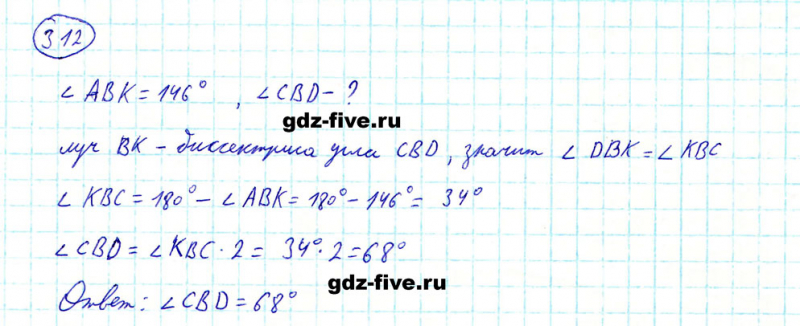 312
∠ ABK = 146° , ∠ CBD - ?
gdz-five.ru
луч BK - биссектриса угла CBD, значит ∠ DBK = ∠ KBC
∠ KBC = 180° - ∠ ABK = 180° - 146° = 34°
∠ CBD = ∠ KBC · 2 = 34° · 2 = 68°
gdz-five.ru
Ответ: ∠ CBD = 68°